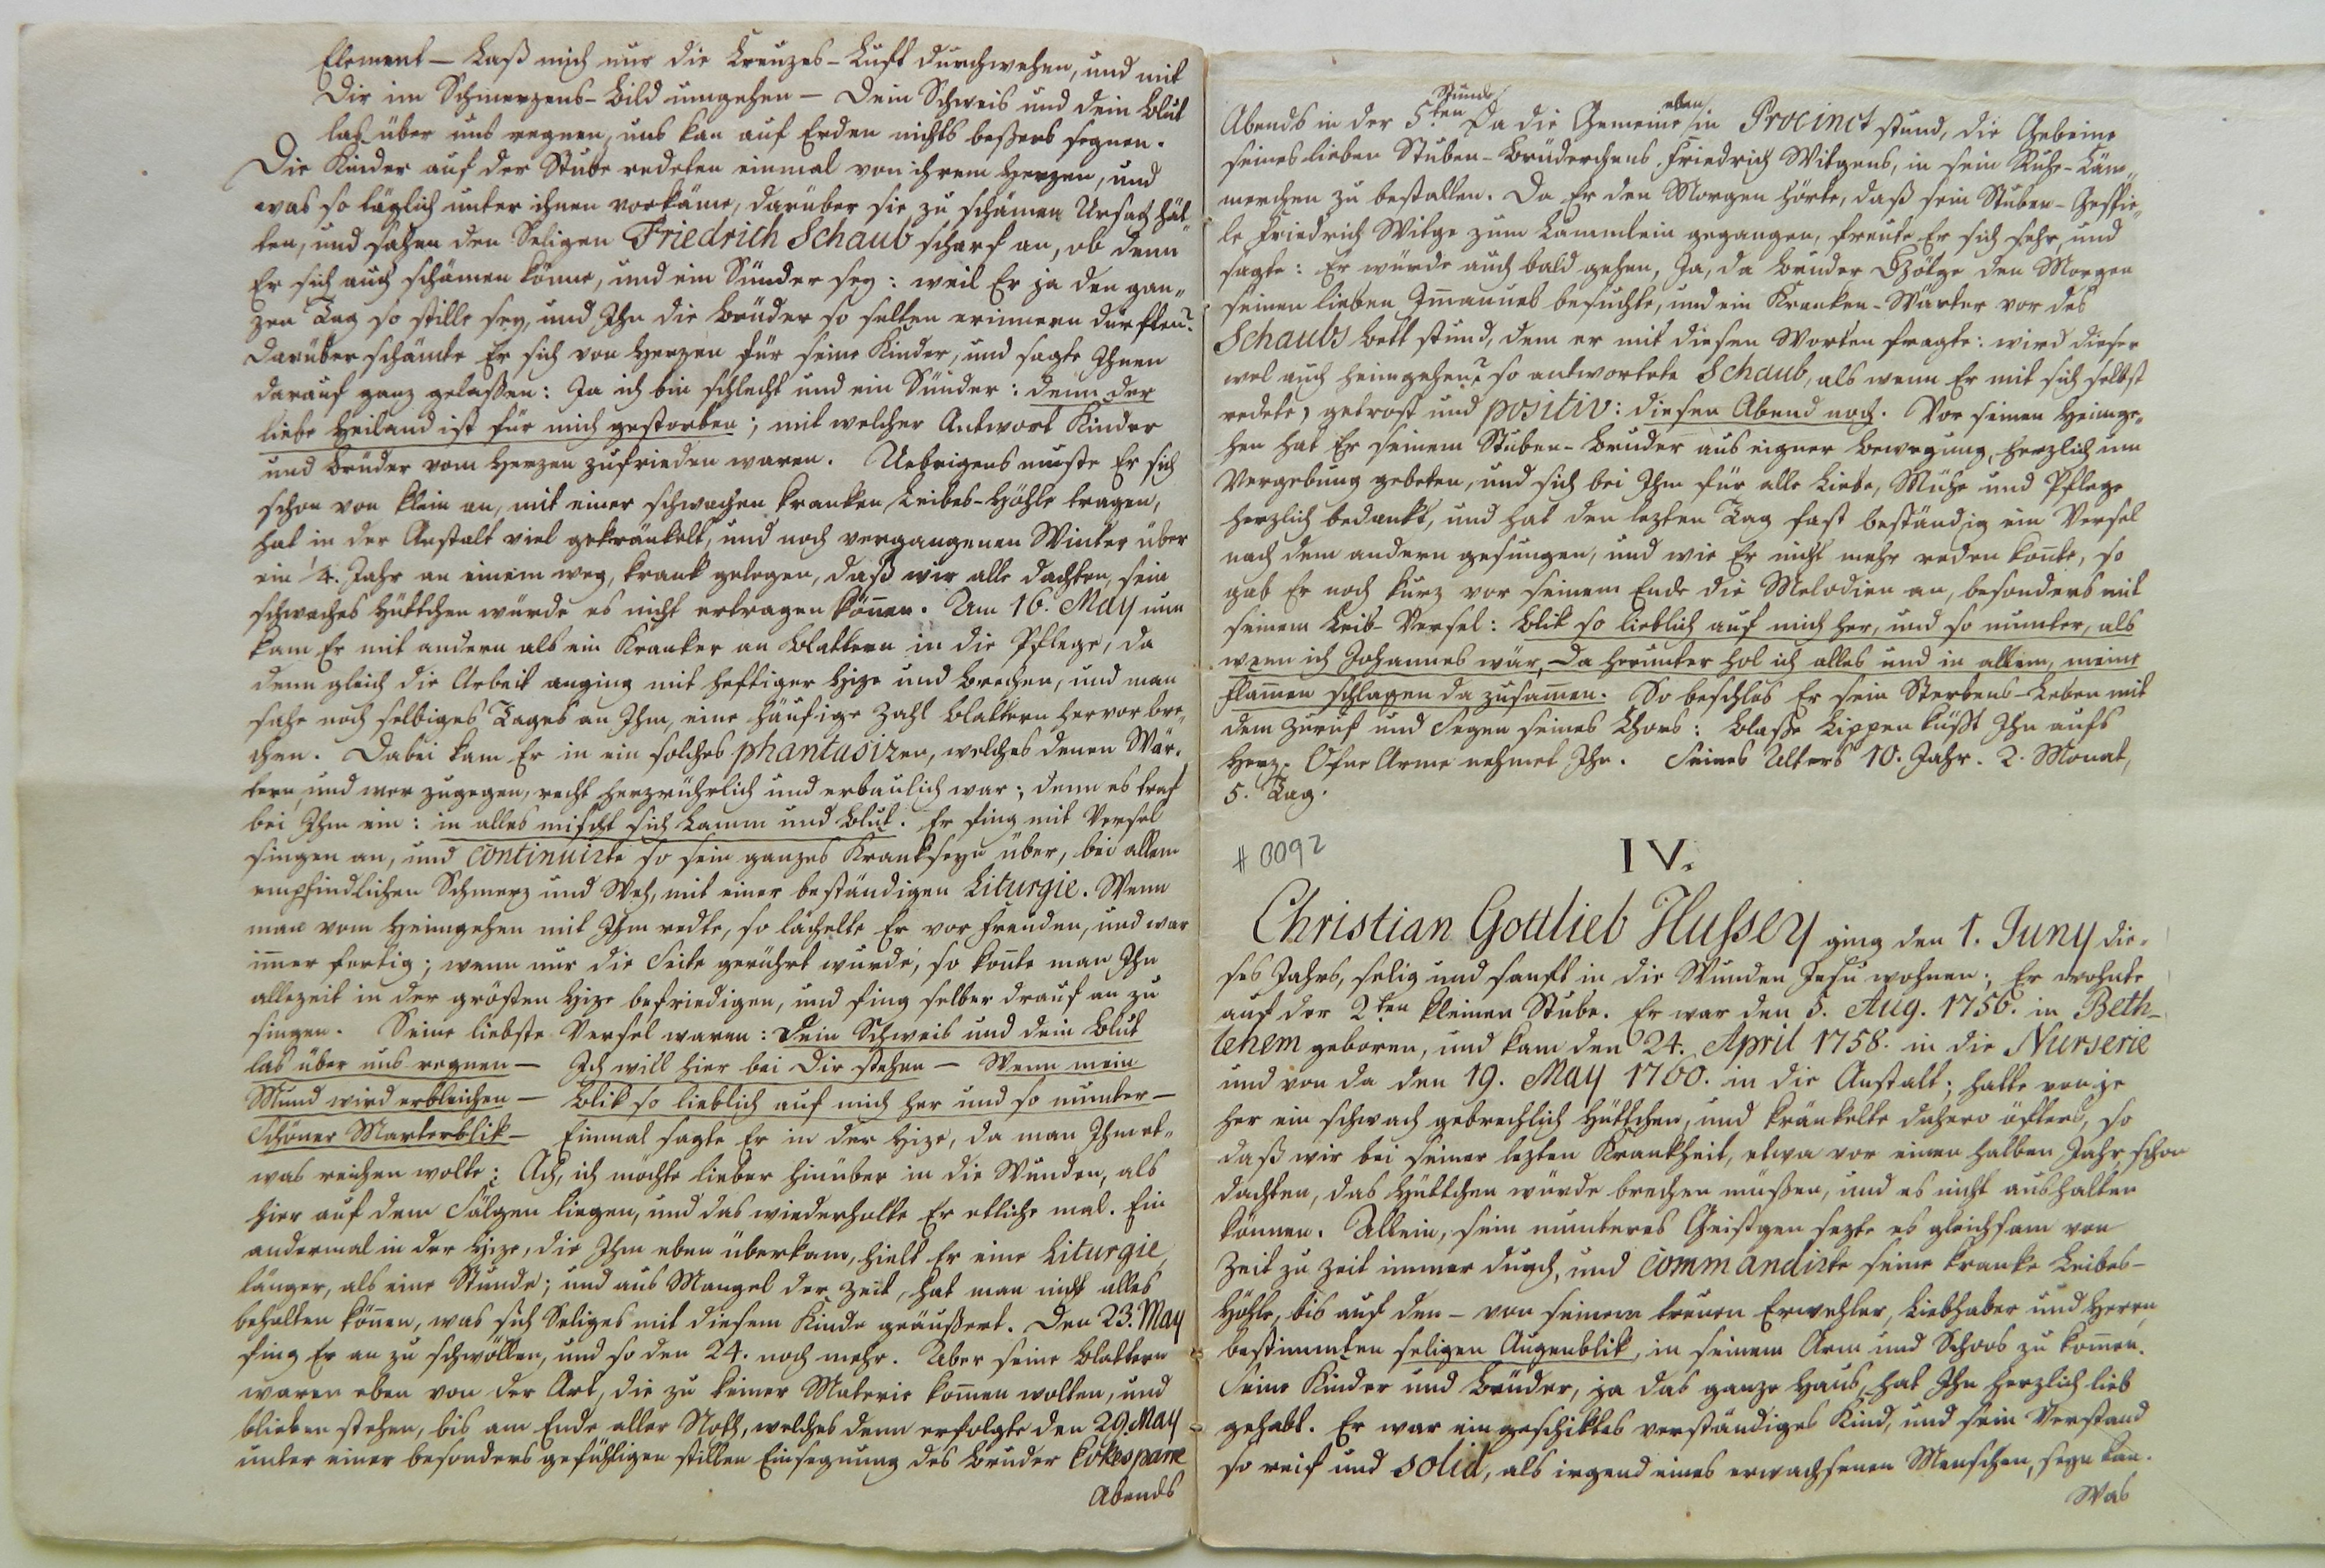 Element – Laß mich nur die Creuzes-Luft durchwehen, und mit
Dir im Schmerzens-Bild umgehen – Dein Schweis und dein Blut
laß über uns regnen, uns kan auf Erden nichts beßers segnen.
Die Kinder auf der Stube redeten einmal von ihrem Herzen, und
was so täglich unter ihnen vorkäme, darüber sie zu schämen Ursach hät„
ten, und sahen den Seligen Friedrich Schaub scharf an, ob denn
Er sich auch schämen könne, und ein Sünder sey: weil Er ja den gan„
zen Tag so stille sey, und Ihn die Brüder so selten erinnern dürften?
Darüber schämte Er sich von Herzen für seine Kinder, und sagte Ihnen
darauf ganz gelaßen: Ja ich bin schlecht und ein Sünder: denn der
liebe Heiland ist für mich gestorben; mit welcher Antwort Kinder
und Brüder vom Herzen zufrieden waren. Uebrigens muste Er sich
schon von klein an, mit einer schwachen kranken Leibes-Höhle tragen,
hat in der Anstalt viel gekränkelt, und noch vergangenen Winter über
ein ¼. Jahr an einem weg, krank gelegen, daß wir alle dachten, sein
schwaches Hüttchen würde es nicht ertragen können. Am 16. May nun
kam Er mit andern als ein Kranker an Blattern in die Pflege, da
denn gleich die Arbeit anging mit heftiger Hize und Brechen, und man
sahe noch selbiges Tages an Ihm, eine häufige Zahl Blattern hervor bre„
chen. Dabei kam Er in ein solches phantasiren, welches denen Wär„
tern, und wer zugegen, recht herzrührlich und erbaulich war; denn es traf
bei Ihm ein: in alles mischt sich Lamm und Blut. Er fing mit Versel
singen an, und continuirte so sein ganzes Krankseyn über, bei allem
empfindlichen Schmerz und Weh, mit einer beständigen Liturgie. Wenn
man vom Heimgehen mit Ihm redte, so lächelte Er vor Freuden, und war
im̄er fertig; wenn nur die Seite gerührt wurde, so kon̄te man Ihn
allezeit in der grösten Hize befriedigen, und fing selber drauf an zu
singen. Seine liebste Versel waren: Dein Schweis und dein Blut
las über uns regnen – Ich will hier bei Dir stehen – Wenn mein
Mund wird erbleichen – Blik so lieblich auf mich her und so munter –
Schöner Marterblik – Einmal sagte Er in der Hize, da man Ihm et„
was reichen wolte: Ach, ich möchte lieber hinüber in die Wunden, als
hier auf dem Sälgen liegen, und das wiederholte Er etliche mal. Ein
andermal in der Hize, die Ihm eben überkam, hielt Er eine Liturgie,
länger, als eine Stunde; und aus Mangel der Zeit, hat man nicht alles
behalten kön̄en, was sich Seliges mit diesem Kinde geäußert. Den 23. May
fing Er an zu schwöllen, und so den 24. noch mehr. Aber seine Blattern
waren eben von der Art, die zu keiner Materie kom̄en wolten, und
blieben stehen, bis am Ende aller Noth, welches denn erfolgte den 29. May
unter einer besonders gefühligen stillen Einsegnung des Bruder
Abends
Abends in der 5ten Stunde da die Gemeine eben in Procinct stund, die Gebeine
seines lieben Stuben-Brüderchens, Friedrich Witgens, in sein Ruhe-Käm„
merchen zu bestatten. Da Er den Morgen hörte, daß sein Stuben-Gespie„
le Friedrich Witge zum Lammlein gegangen, freute Er sich sehr, und
sagte: Er würde auch bald gehen, Ja, da Bruder den Morgen
seinen lieben Im̄anuel besuchte, und ein Kranken-Wärter vor des
Schaubs Bett stund, dem er mit diesen Worten fragte: wird dieser
wol auch heimgehen? so antwortete Schaub, als wenn Er mit sich selbst
redete, getrost und positiv: diesen Abend noch. Vor seinen Heimge„
hen hat Er seinem Stuben-Bruder aus eigner Bewegung, herzlich um
Vergebung gebeten, und sich bei Ihm für alle Liebe, Mühe und Pflege
herzlich bedankt, und hat den lezten Tag fast beständig ein Versel
nach dem andern gesungen, und wie Er nicht mehr reden kon̄te, so
gab Er noch kurz vor seinem Ende die Melodien an, besonders mit
seinem Leib-Versel: Blik so lieblich auf mich her, und so munter, als
wenn ich Johannes wär, Da herunter hol ich alles und in allem, meine
Flam̄en schlagen da zusam̄en. So beschlos Er sein Sterbens-Leben mit
dem Zuruf und Segen seines Chors: Blaße Lippen küßt Ihn aufs
Herz. Ofne Arme nehmet Ihn. Seines Alters 10. Jahr. 2. Monat,
5. Tag.
# 0092
IV.
Christian Gottlieb Hußey ging den 1. Juny die„
ses Jahrs, selig und sanft in die Wunden Jesu wohnen; Er wohnte
auf der 2ten kleinen Stube. Er war den 5. Aug. 1756. in Beth–
lehem geboren, und kam den 24. April 1758. in die Nurserie
und von da den 19. May 1760. in die Anstalt; hatte von je
her ein schwach gebrechlich Hüttchen, und kränkelte dahero öfters, so
daß wir bei seiner lezten Krankheit, etwa vor einen halben Jahr schon
dachten, das Hüttchen würde brechen müßen, und es nicht aushalten
können. Allein, sein munteres Geistgen sezte es gleichsam von
Zeit zu Zeit immer durch, und commandirte seine kranke Leibes–
Höhle, bis auf den – von seinem treuen Erwehler, Liebhaber und Herrn,
bestimmten seligen Augenblik, in seinem Arm und Schoos zu kom̄en.
Seine Kinder und Brüder, ja das ganze Haus, hat Ihn herzlich lieb
gehabt. Er war ein geschiktes verständiges Kind, und sein Verstand
so reif und solid, als irgend eines erwachsenen Menschen, seyn kan.
Was